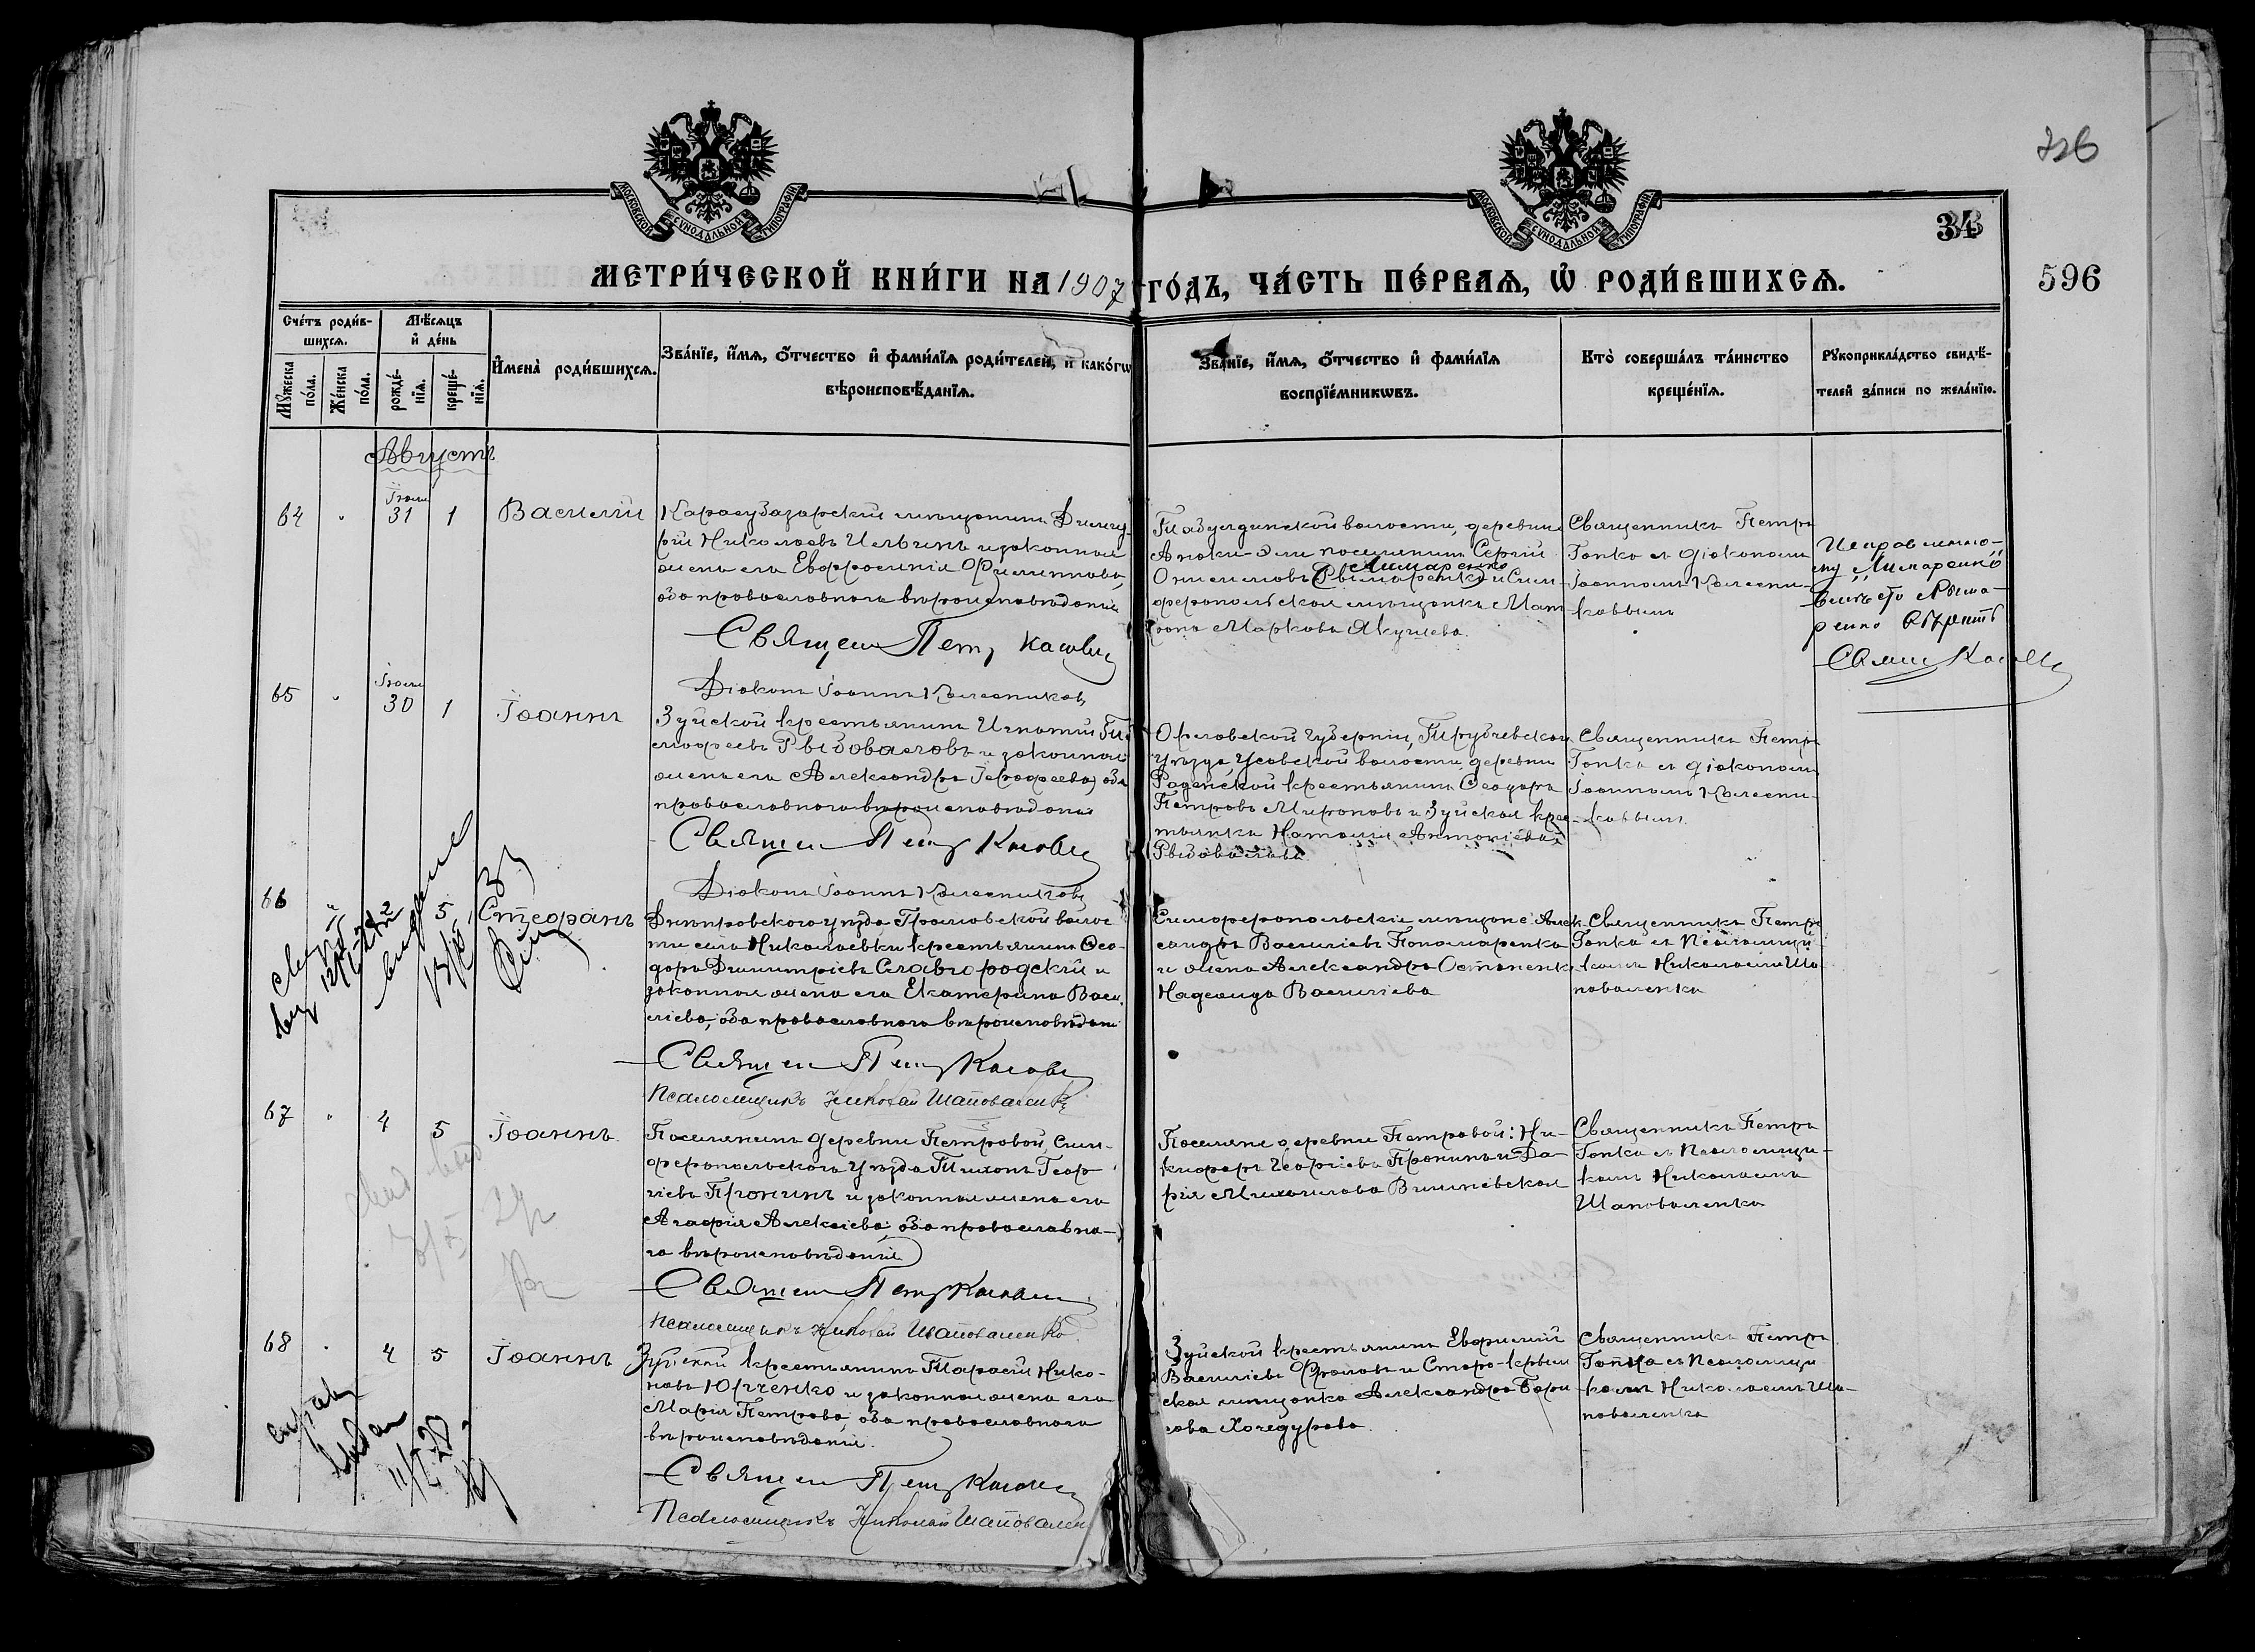 326
34
596
МОСКОВСКОЙ СѴНОДАЛЬНОЙ ТИПОГРАФІИ
МОСКОВСКОЙ СѴНОДАЛЬНОЙ ТИПОГРАФІИ
МЕТРИ́ЧЕСКОЙ КНИ́ГИ НА 1907 ГО́ДЪ, ЧА́СТЬ ПЕ́РВАѦ, Ѡ҆ РОДИ́ВШИХСѦ.
Сче́тъ роди́в-
шихсѧ.
Мꙋ́жеска по́ла.
Же́нска по́ла.
Мѣ́сѧцъ
и҆ де́нь
рожде́-
нїѧ.
креще́-
нїѧ.
И҆мена̀ роди́вшихсѧ.
Зва́нїе, и҆́мѧ, ѻ҆́тчество и҆ фами́лїѧ роди́телей, и҆ како́гѡ
вѣроисповѣ́данїѧ.
Зва́нїе, и҆́мѧ, ѻ҆́тчество и҆ фами́лїѧ
воспрїе́мникѡвъ.
Кто̀ соверша́лъ та́инство
креще́нїѧ.
Рꙋкоприкла́дство свидѣ́-
телей за́писи по жела́нїю.
Августъ
64 " Іюля 31 1 Василій
Карасубазарскій мѣщанинъ Димит-
рій Николаевъ Ильинъ и законная
жена его Евфросинія Филиппова,
оба православнаго вѣроисповѣданія
Священ Петр
Діаконъ Іоаннъ Колесниковъ
Табулдинской волости, деревни
поселянинъ Сергій
Онисимовъ Лимаренко и Сим-
феропольская мѣщанка Мат-
рона Маркова Якушева.
Священникъ Петръ
съ діакономъ
Іоанномъ Колесни-
ковымъ
Исправленно-
му "Лимаренко"
вмѣсто Рыма-
ренко вѣрить
65 " Іюля 30 1 Іоаннъ
Зуйской крестьянинъ Игнатій Ти-
мофеевъ Рыбоваловъ и законная
жена его Александра Іерофеева, оба
православнаго вѣроисповѣданія
Священ Петр
Діаконъ Іоаннъ Колесниковъ
Орловской губерніи, Трубчевскаго
уѣзда, Усовской волости, деревни
крестьянинъ Ѳеодоръ
Петровъ Мироновъ и Зуйская крес-
тьянка Наталія Антоніева
Рыбовалова
Священникъ Петръ
съ діакономъ
Іоанномъ Колесни-
ковымъ
66 " 2 5 Стефанъ
Днѣпровскаго уѣзда волос-
ти села Николаевки крестьянинъ Ѳео-
доръ Димитріевъ Славгородскій и
законная жена его Екатерина Васи-
ліева, оба православнаго вѣроисповѣданія
Священ Петр
Псаломщикъ Николай Шаповаленко
Симферопольскіе мѣщане Алек-
сандръ Василіевъ Пономаренко
и жена Александра Остапенко
Надежда Василіева
Священникъ Петръ
съ Псаломщи-
комъ Николаемъ Ша-
поваленко
67 " 4 5 Іоаннъ
Поселянинъ деревни Петровой, Сим-
феропольскаго уѣзда Тихонъ Геор-
гіевъ Пронинъ и законная жена его
Агафія Алексіева, оба православна-
го вѣроисповѣданія
Священ Петр
Псаломщикъ Николай Шаповаленко
Поселяне деревни Петровой: Ни-
кифоръ Георгіевъ Пронинъ и Да-
рія Михаилова Вишневская
Священникъ Петръ
съ Псаломщи-
комъ Николаемъ
Шаповаленко
68 " 4 5 Іоаннъ
Зуйской крестьянинъ Тарасій Нико-
новъ Юрченко и законная жена его
Марія Петрова, оба православнаго
вѣроисповѣданія.
Священ Петр
Псаломщикъ Николай Шаповаленко
Зуйской крестьянинъ Евфимій
Василіевъ Фроловъ и Старо-Крым-
ская мѣщанка Александра Бори-
сова
Священникъ Петръ
съ Псаломщи-
комъ Николаемъ Ша-
поваленко